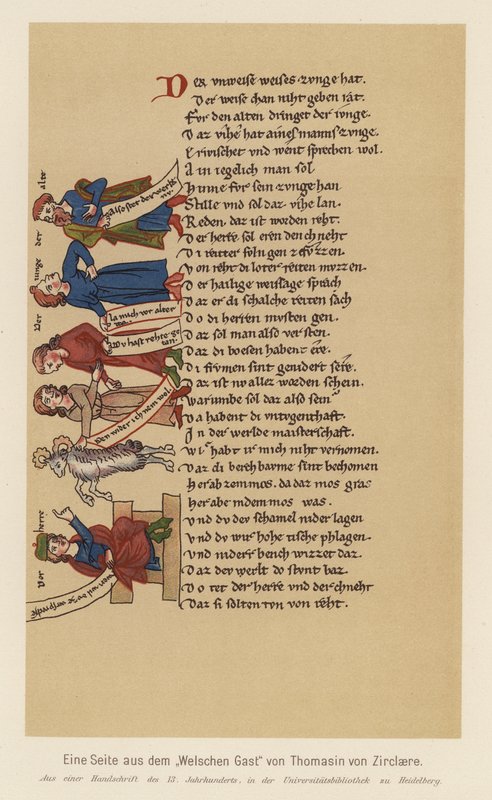 Der vnweise weises zvnge hat.
Der weise chan niht geben rat.
Fvr den alten dringet der ivnge.
Daz vihe hat aines manns zvnge.
Erwischet vnd went sprechen wol.
Ain iegelich man sol
Hinne for sein zvnge han
Stille vnd sol daz vihe lan.
Reden. daz ist worden reht.
Der herre sol eren den chneht
Di reitter soln gen zefvzzen.
Von reht di loter reiten mvzzen.
Der hailige weissage sprach
Daz er di schalche reiten sach
Do di herren mvsten gen.
Daz sol man also versten.
Daz di boesen habent ere.
Di frvmen sint genidert sere.
Daz ist nv allez worden schein.
Warvmbe sol daz also sein
Da habent di vntvgenthaft.
In der werlde maisterschaft.
Wi habt ir mich niht vernomen.
Daz di berch bavme sint bechomen
Herab zem mos. da daz mos gras
Her abe in dem mos was.
Vnd do der schamel nider lagen
Vnd do wir hohe tische phlagen.
Vnd niderr bench wizzet daz.
Daz der werlt do stvnt baz.
Do tet der herre vnd der chneht
Daz si solten tvn von reht.
alte
Also stet der werlt
der
iunge
Der
la mich wir alter
Dv hast rehte ge
tan.
Den nider ich vein wol.
herre
Der
Eine Seite aus dem „Welschen Gast" von Thomasin von Zirclære.
Aus einer Handschrift des 13. Jahrhunderts, in der Universitätsbibliothek zu Heidelberg.